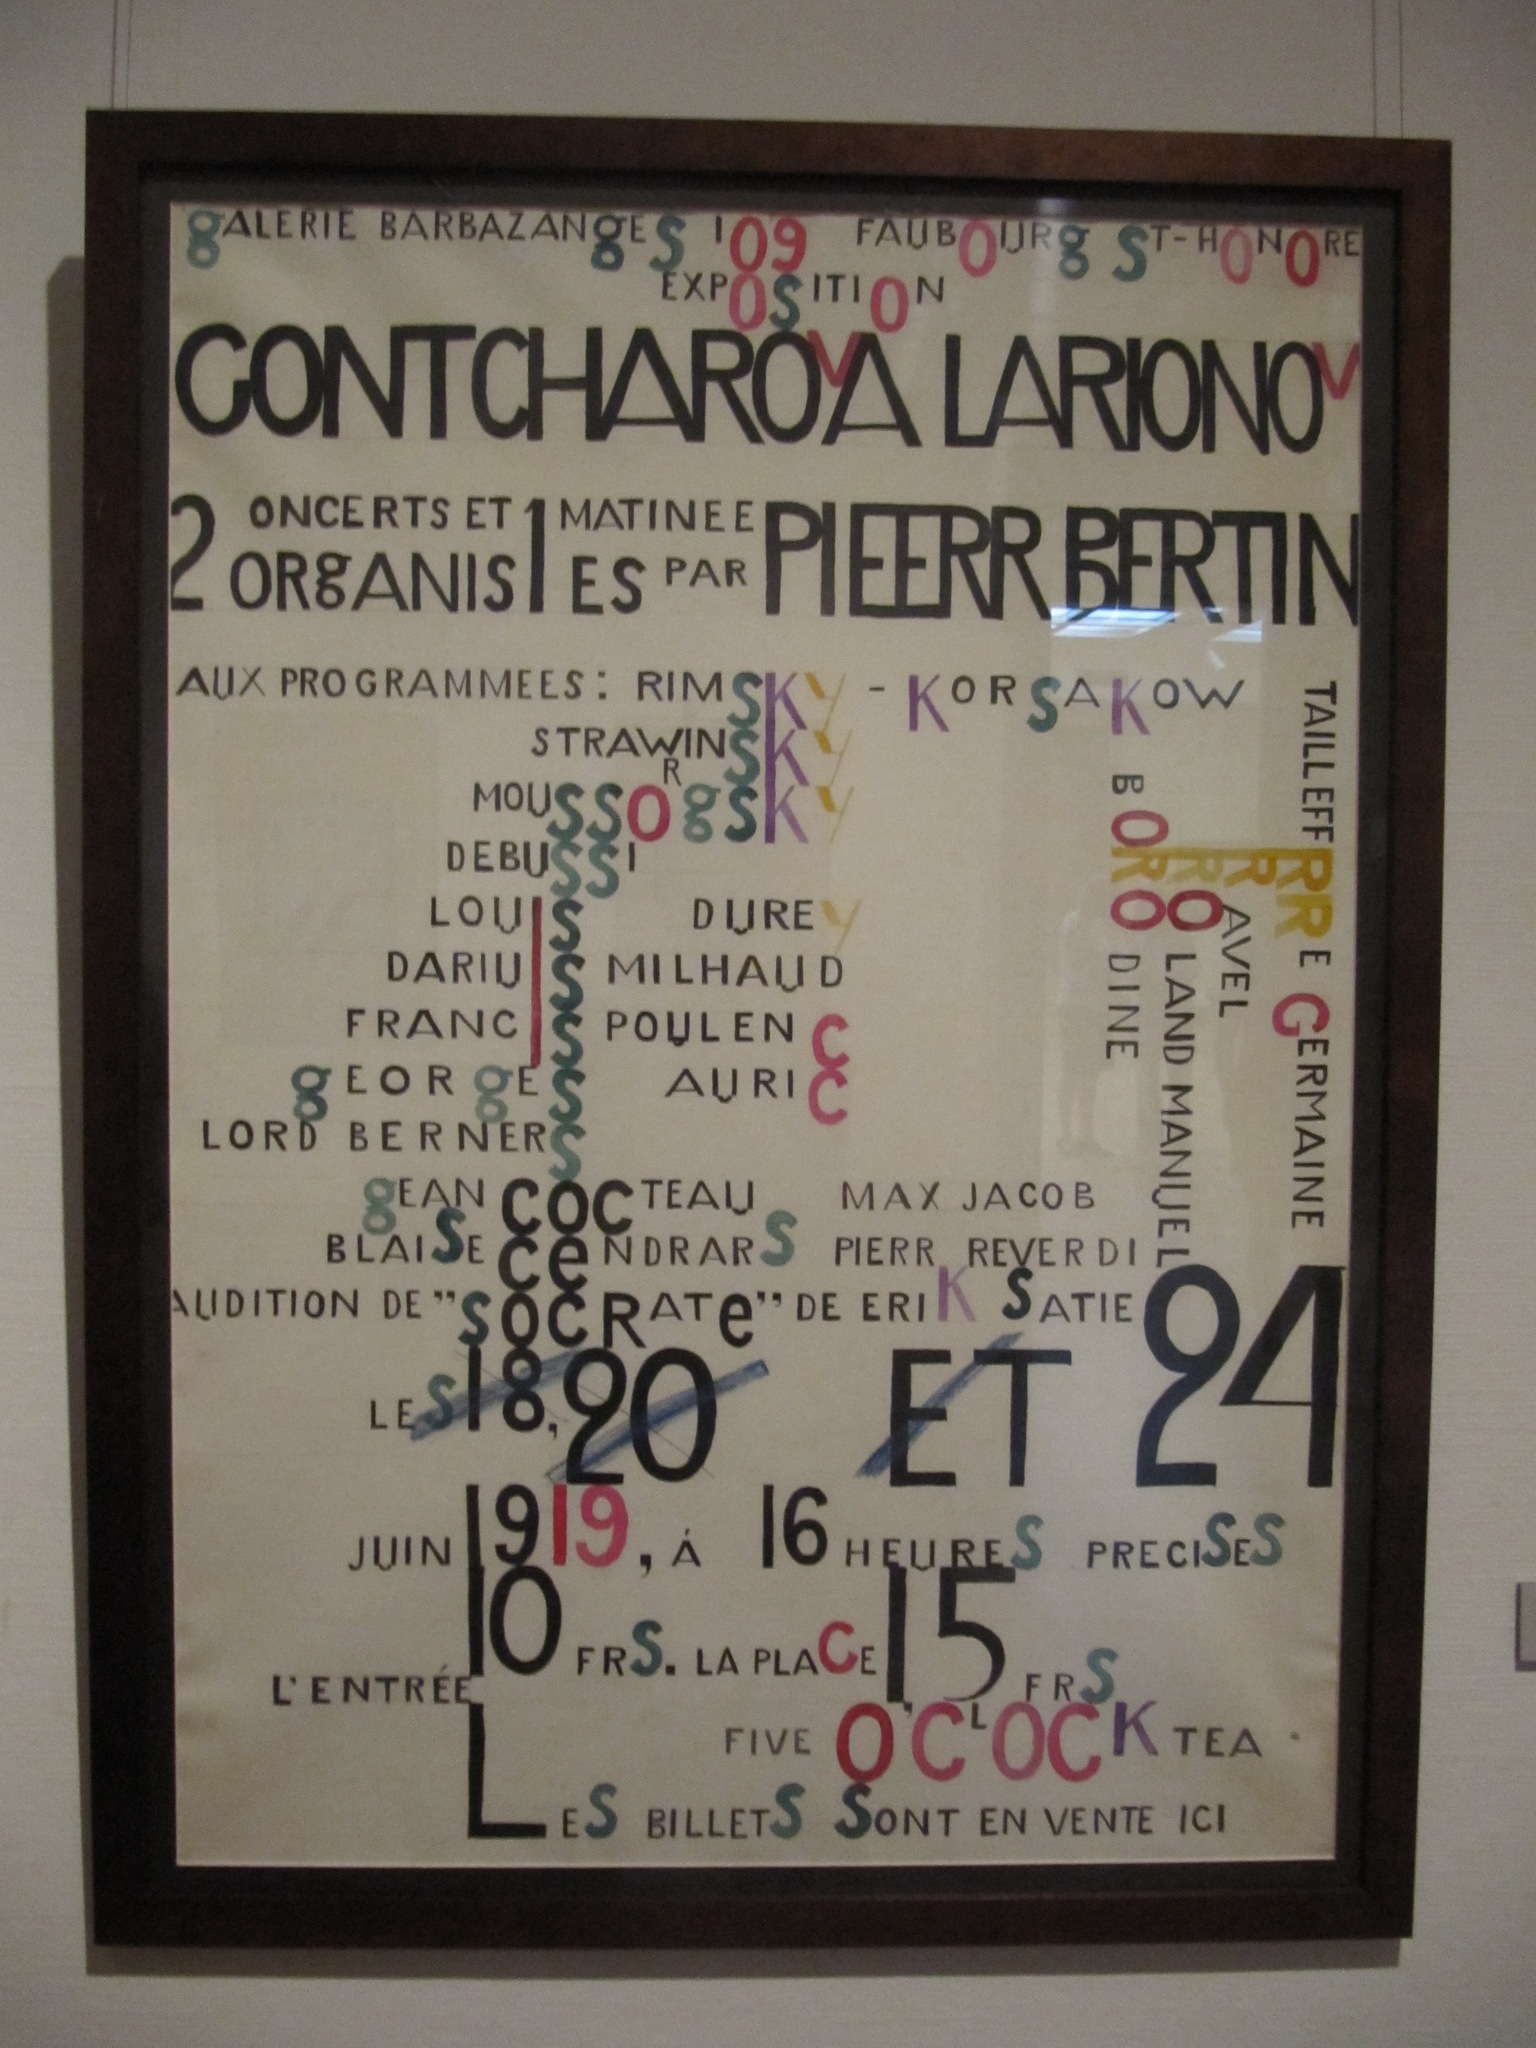 gALERIE BARBAZANgES 109 FAUBOURg ST-HONORE
EXPOSITION
GONTCHAROVA LARIONOV
2 ONCERTS ET 1 MATINEE
ORgANIS ES PAR
PIEERR BERTIN
AUX PROGRAMMEES: RIMSKY - KORSAKOW
STRAWINSKY
MOUSSORgSKY
DEBUSSI
LOUIS DUREY
DARIUS MILHAUD
FRANCIS POULENC
gEORgES AURIC
LORD BERNERS
BORODINE
ROLAND MANUEL
RAVEL
TAILLEFFRRE GERMAINE
gEAN COCTEAU MAX JACOB
BLAISE CeNDRARS PIERR REVERDI
AUDITION DE "SOCRATe" DE ERIK SATIE
LES 18, 20 ET 24
JUIN 1919, À 16 HEURES PRECISES
L'ENTRÉE 10 FRS. LA PLACE 15 FRS
FIVE O'CLOCK TEA
LES BILLETS SONT EN VENTE ICI